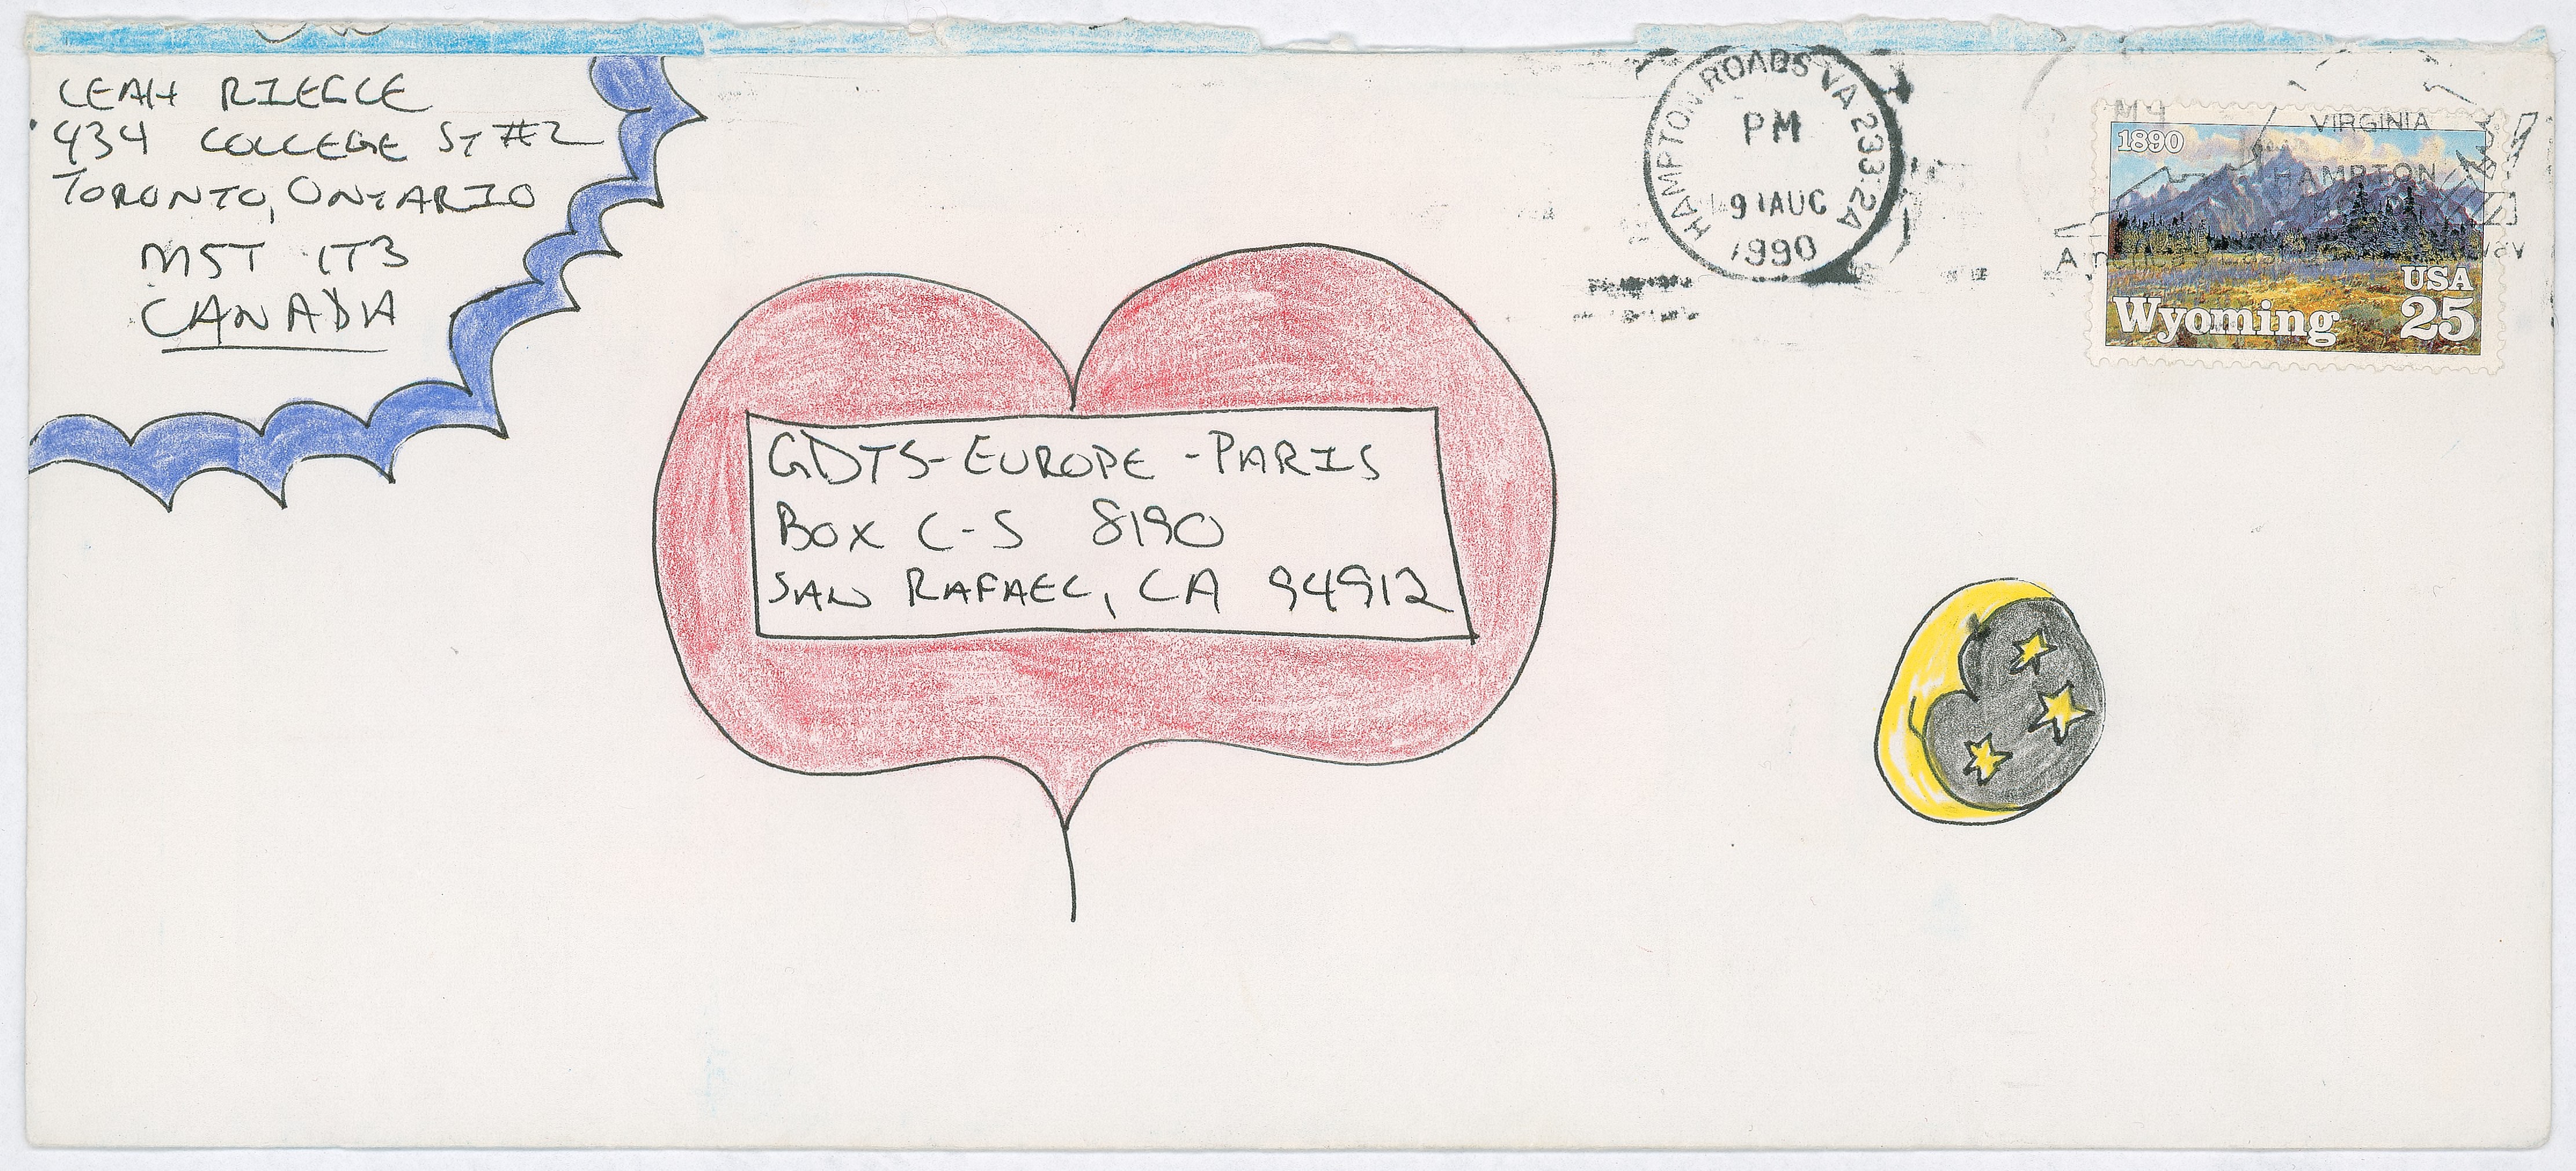 LEAH RIEGLE
434 COLLEGE ST #2
TORONTO, ONTARIO
M5T 1T3
CANADA
HAMPTON ROADS VA 233-24
PM
9 AUG
1990
VIRGINIA
HAMPTON
1890
USA
Wyoming 25
GDTS-EUROPE-PARIS
BOX C-S 8190
SAN RAFAEL, CA 94912